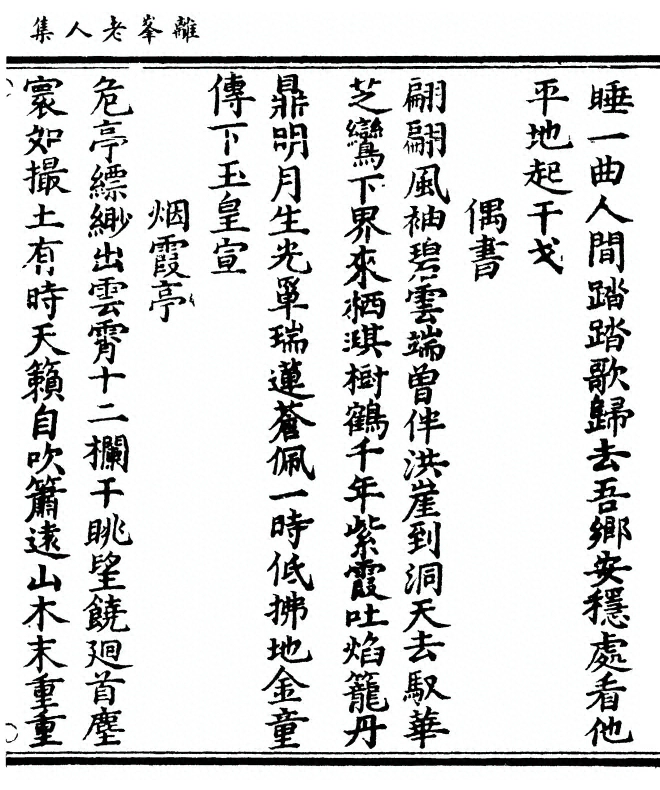 離峯老人集
睡一曲人間踏踏歌歸去吾鄉安穩處看他
平地起干戈
偶書
翩翩風袖碧雲端曽伴洪崖到洞天去馭華
芝鸞下界來栖淇樹鶴千年紫霞吐焰籠丹
鼎明月生光單瑞蓮蒼佩一時低拂地金童
傳下玉皇宣
烟霞亭
危亭縹緲出雲霄十二欄干眺望饒廻首塵
寰如撮土有時天籟自吹簫遠山木末重重